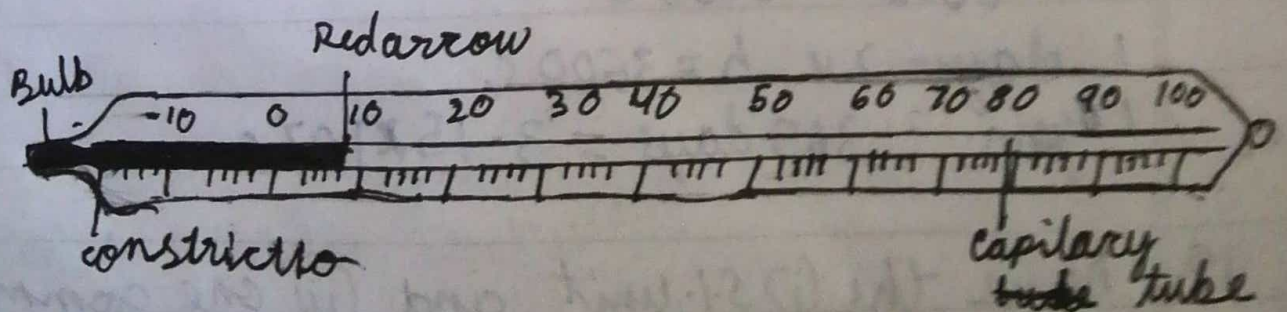 Redarrow
Bulb
-10 0 10 20 30 40 50 60 70 80 90 100
constrictio
capilary
tube